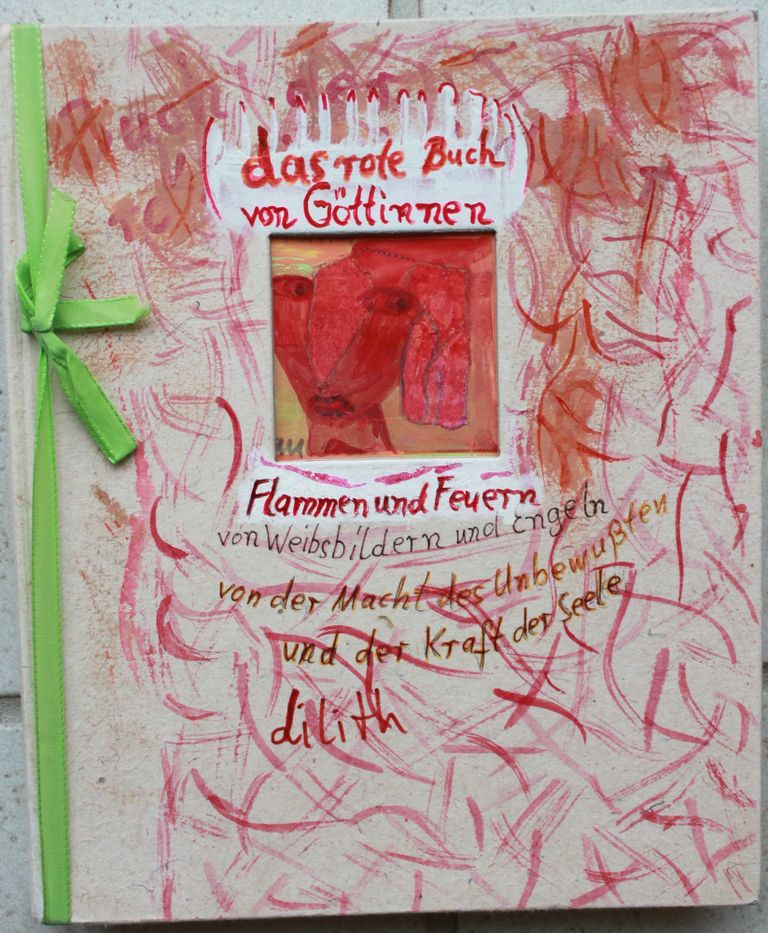 das rote Buch
von Göttinnen
Flammen und Feuern
von Weibsbildern und Engeln
von der Macht des Unbewußten
und der Kraft der Seele
dilith